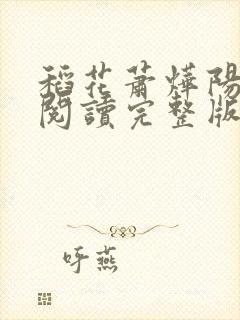 稻花蕭燁陽
閱讀完整版
呼燕